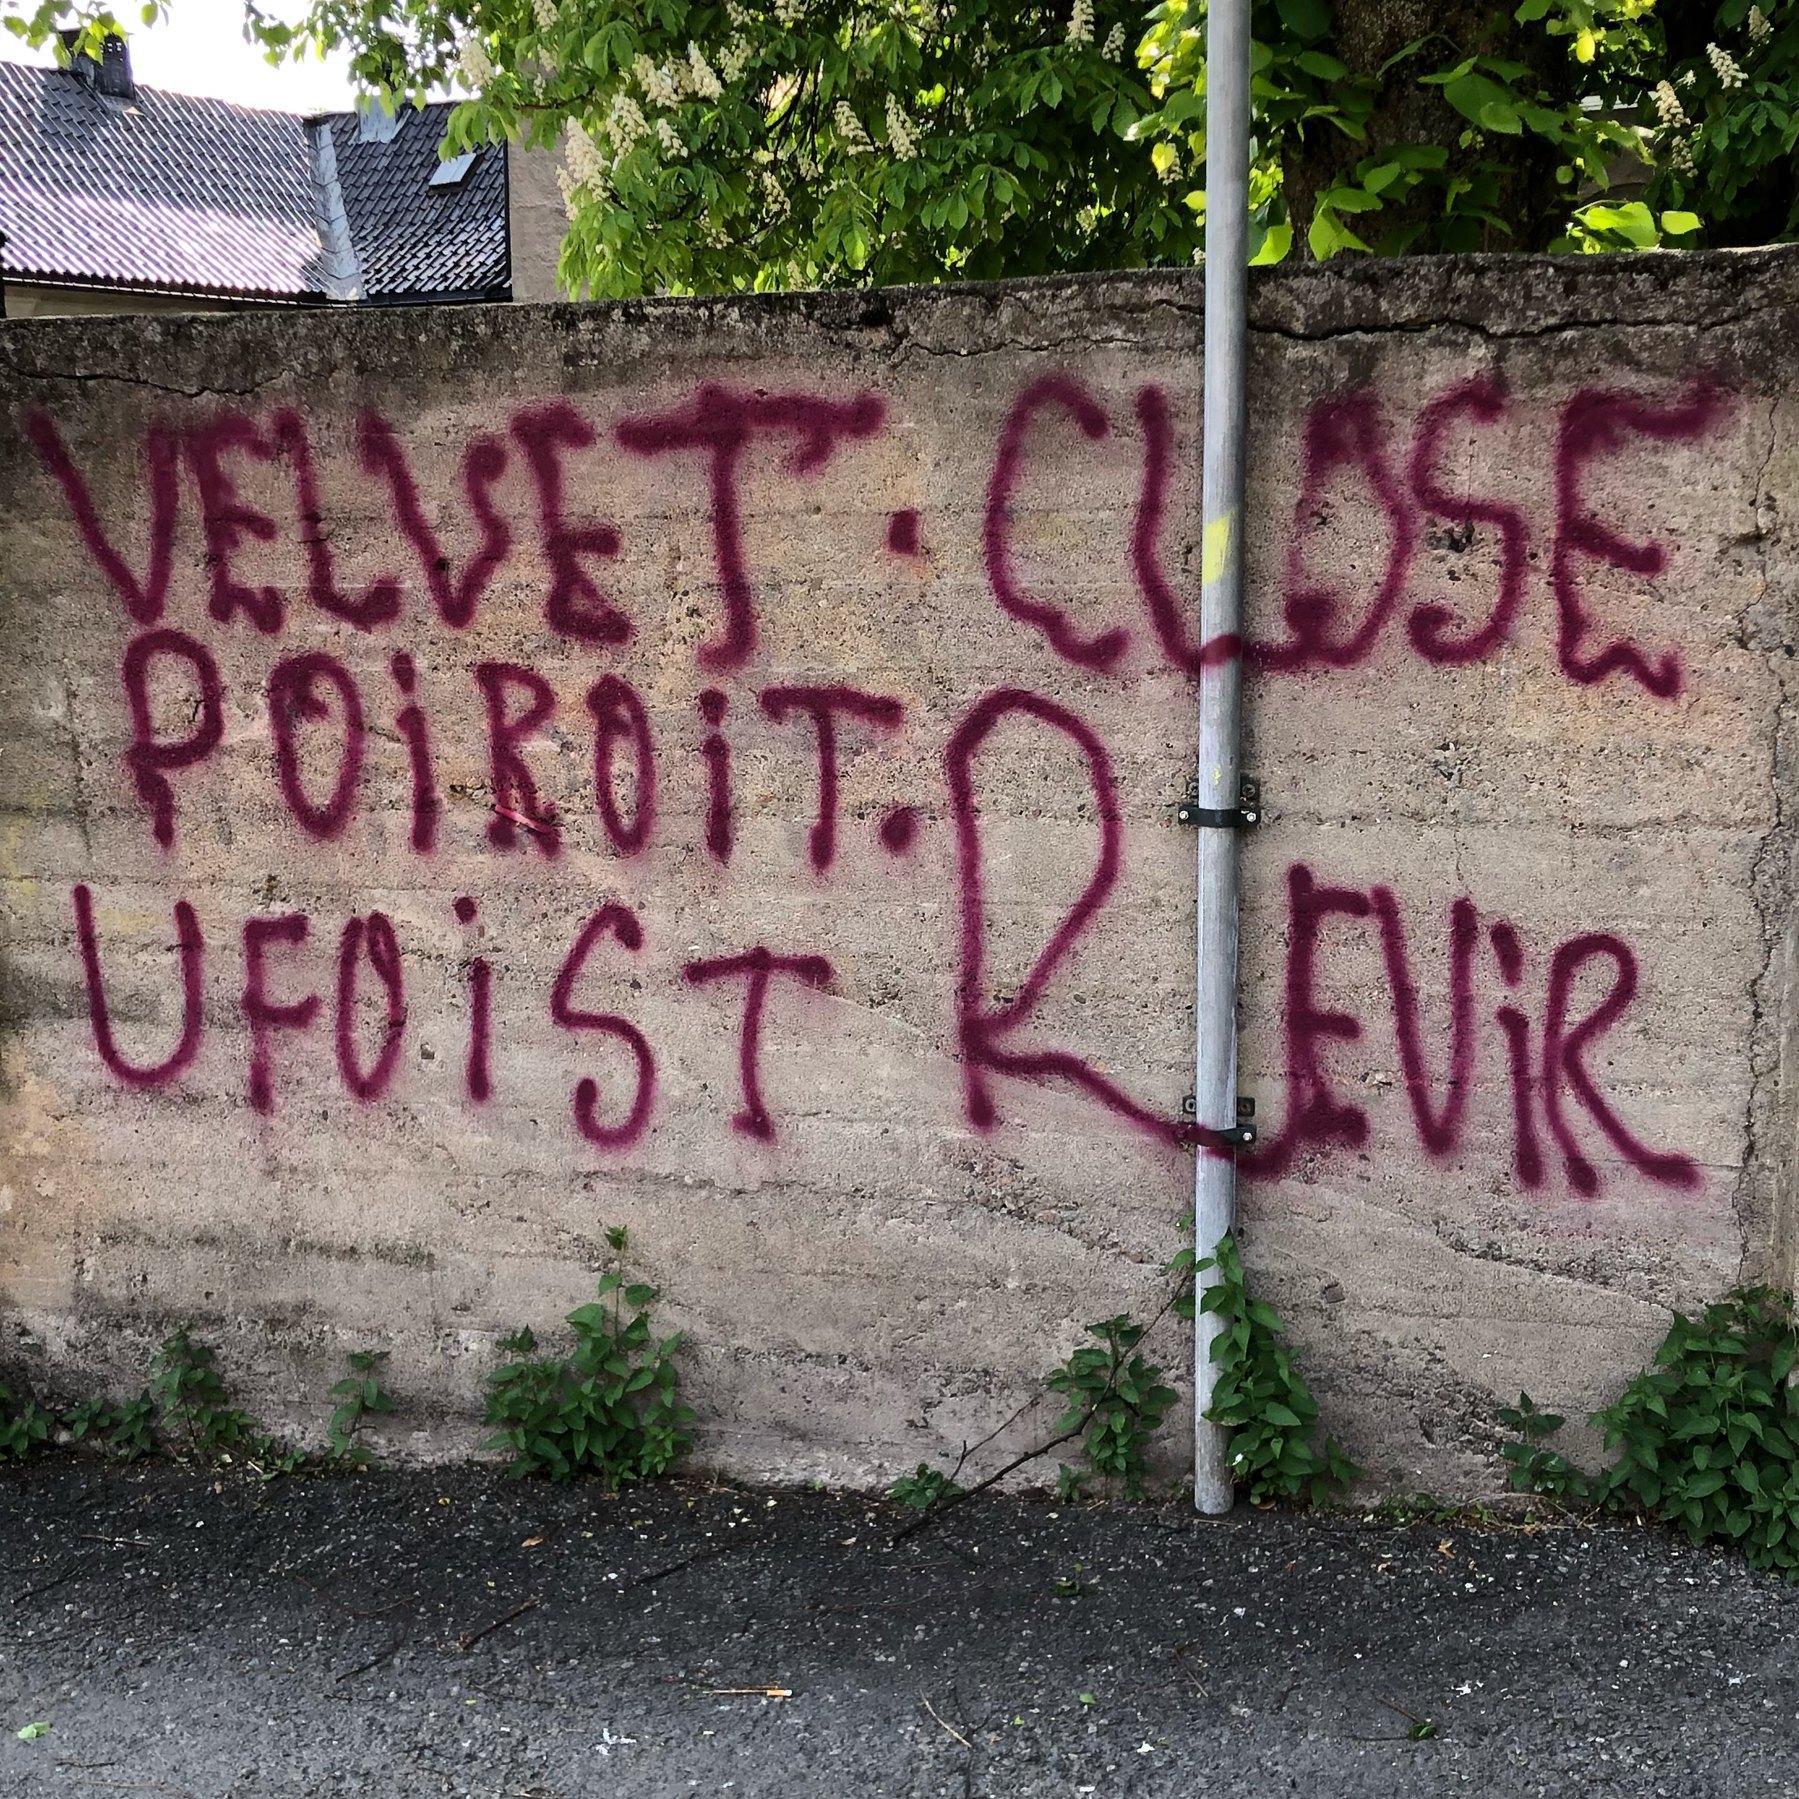 VELVET · CLOSE
POiROiT.
UFOiST REViR